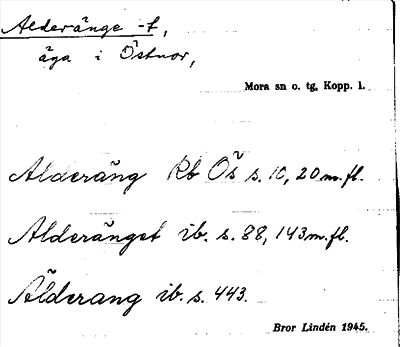 Alderänge -t,
äga i Östnor,
Mora sn o. tg, Kopp. l.
Alderäng Rb Ös s. 10, 20 m.fl.
Alderänget ib. s. 88, 143 m.fl.
Älderang ib. s. 443.
Bror Lindén 1945.